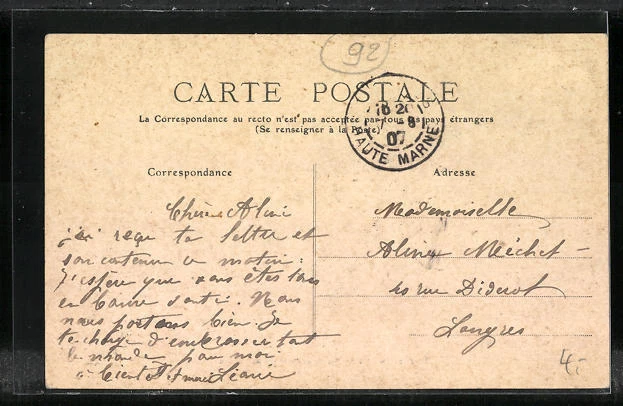 92
CARTE POSTALE
18 20
7 - 8
07
HAUTE MARNE
La Correspondance au recto n'est pas acceptée par tous les pays étrangers
(Se renseigner à la Poste)
Correspondance
Adresse
Chère Aline
j'ai reçu ta lettre et
son contenu ce matin :
J'espère que vous êtes tous
en bonne santé. Nous
nous portons bien. Je
te charge d'embrasser tout
le monde pour moi
à bientôt
Mademoiselle
Aline Méchet -
rue Diderot
Langres
4.-